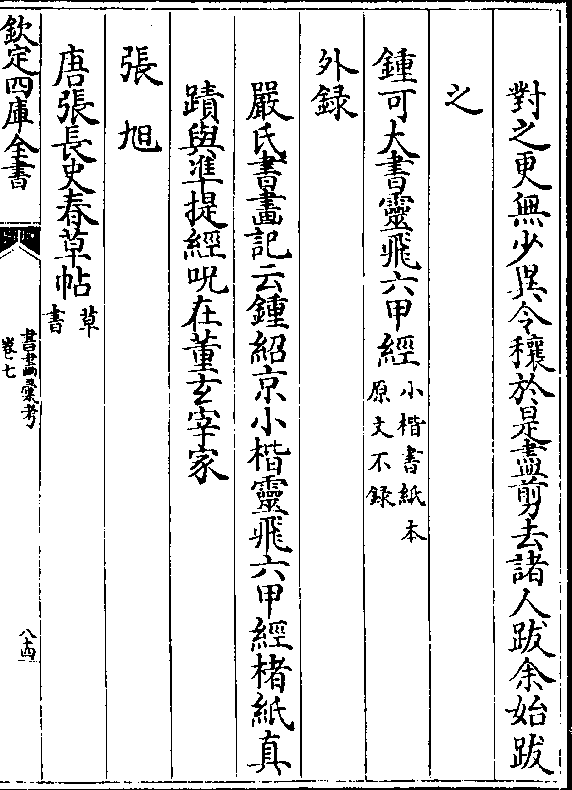 對之更無少異令穰於是盡剪去諸人跋余始跋
之
鍾可大書靈飛六甲經 小楷書紙本
原文不錄
外録
嚴氏書畫記云鍾紹京小楷靈飛六甲經楮紙真
蹟與準提經呪在董玄宰家
張旭
唐張長史春草帖 草
書
欽定四庫全書
書畫彙考
卷七
八十四